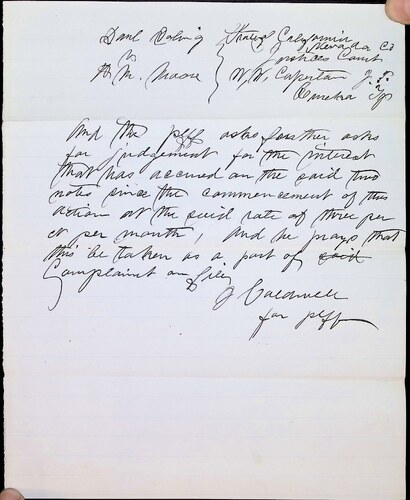 Danl Corning State of California
vs Nevada Co
Justices Court
A. M. Moore W. W. Capertan J. P.
Eureka Tp
And the plff asks further asks
for judgement for the interest
that has accrued on the said two
notes since the commencement of this
action at the said rate of three per
ct per month, And he prays that
this be taken as a part of said
Complaint on file
J Caldwell
for plff